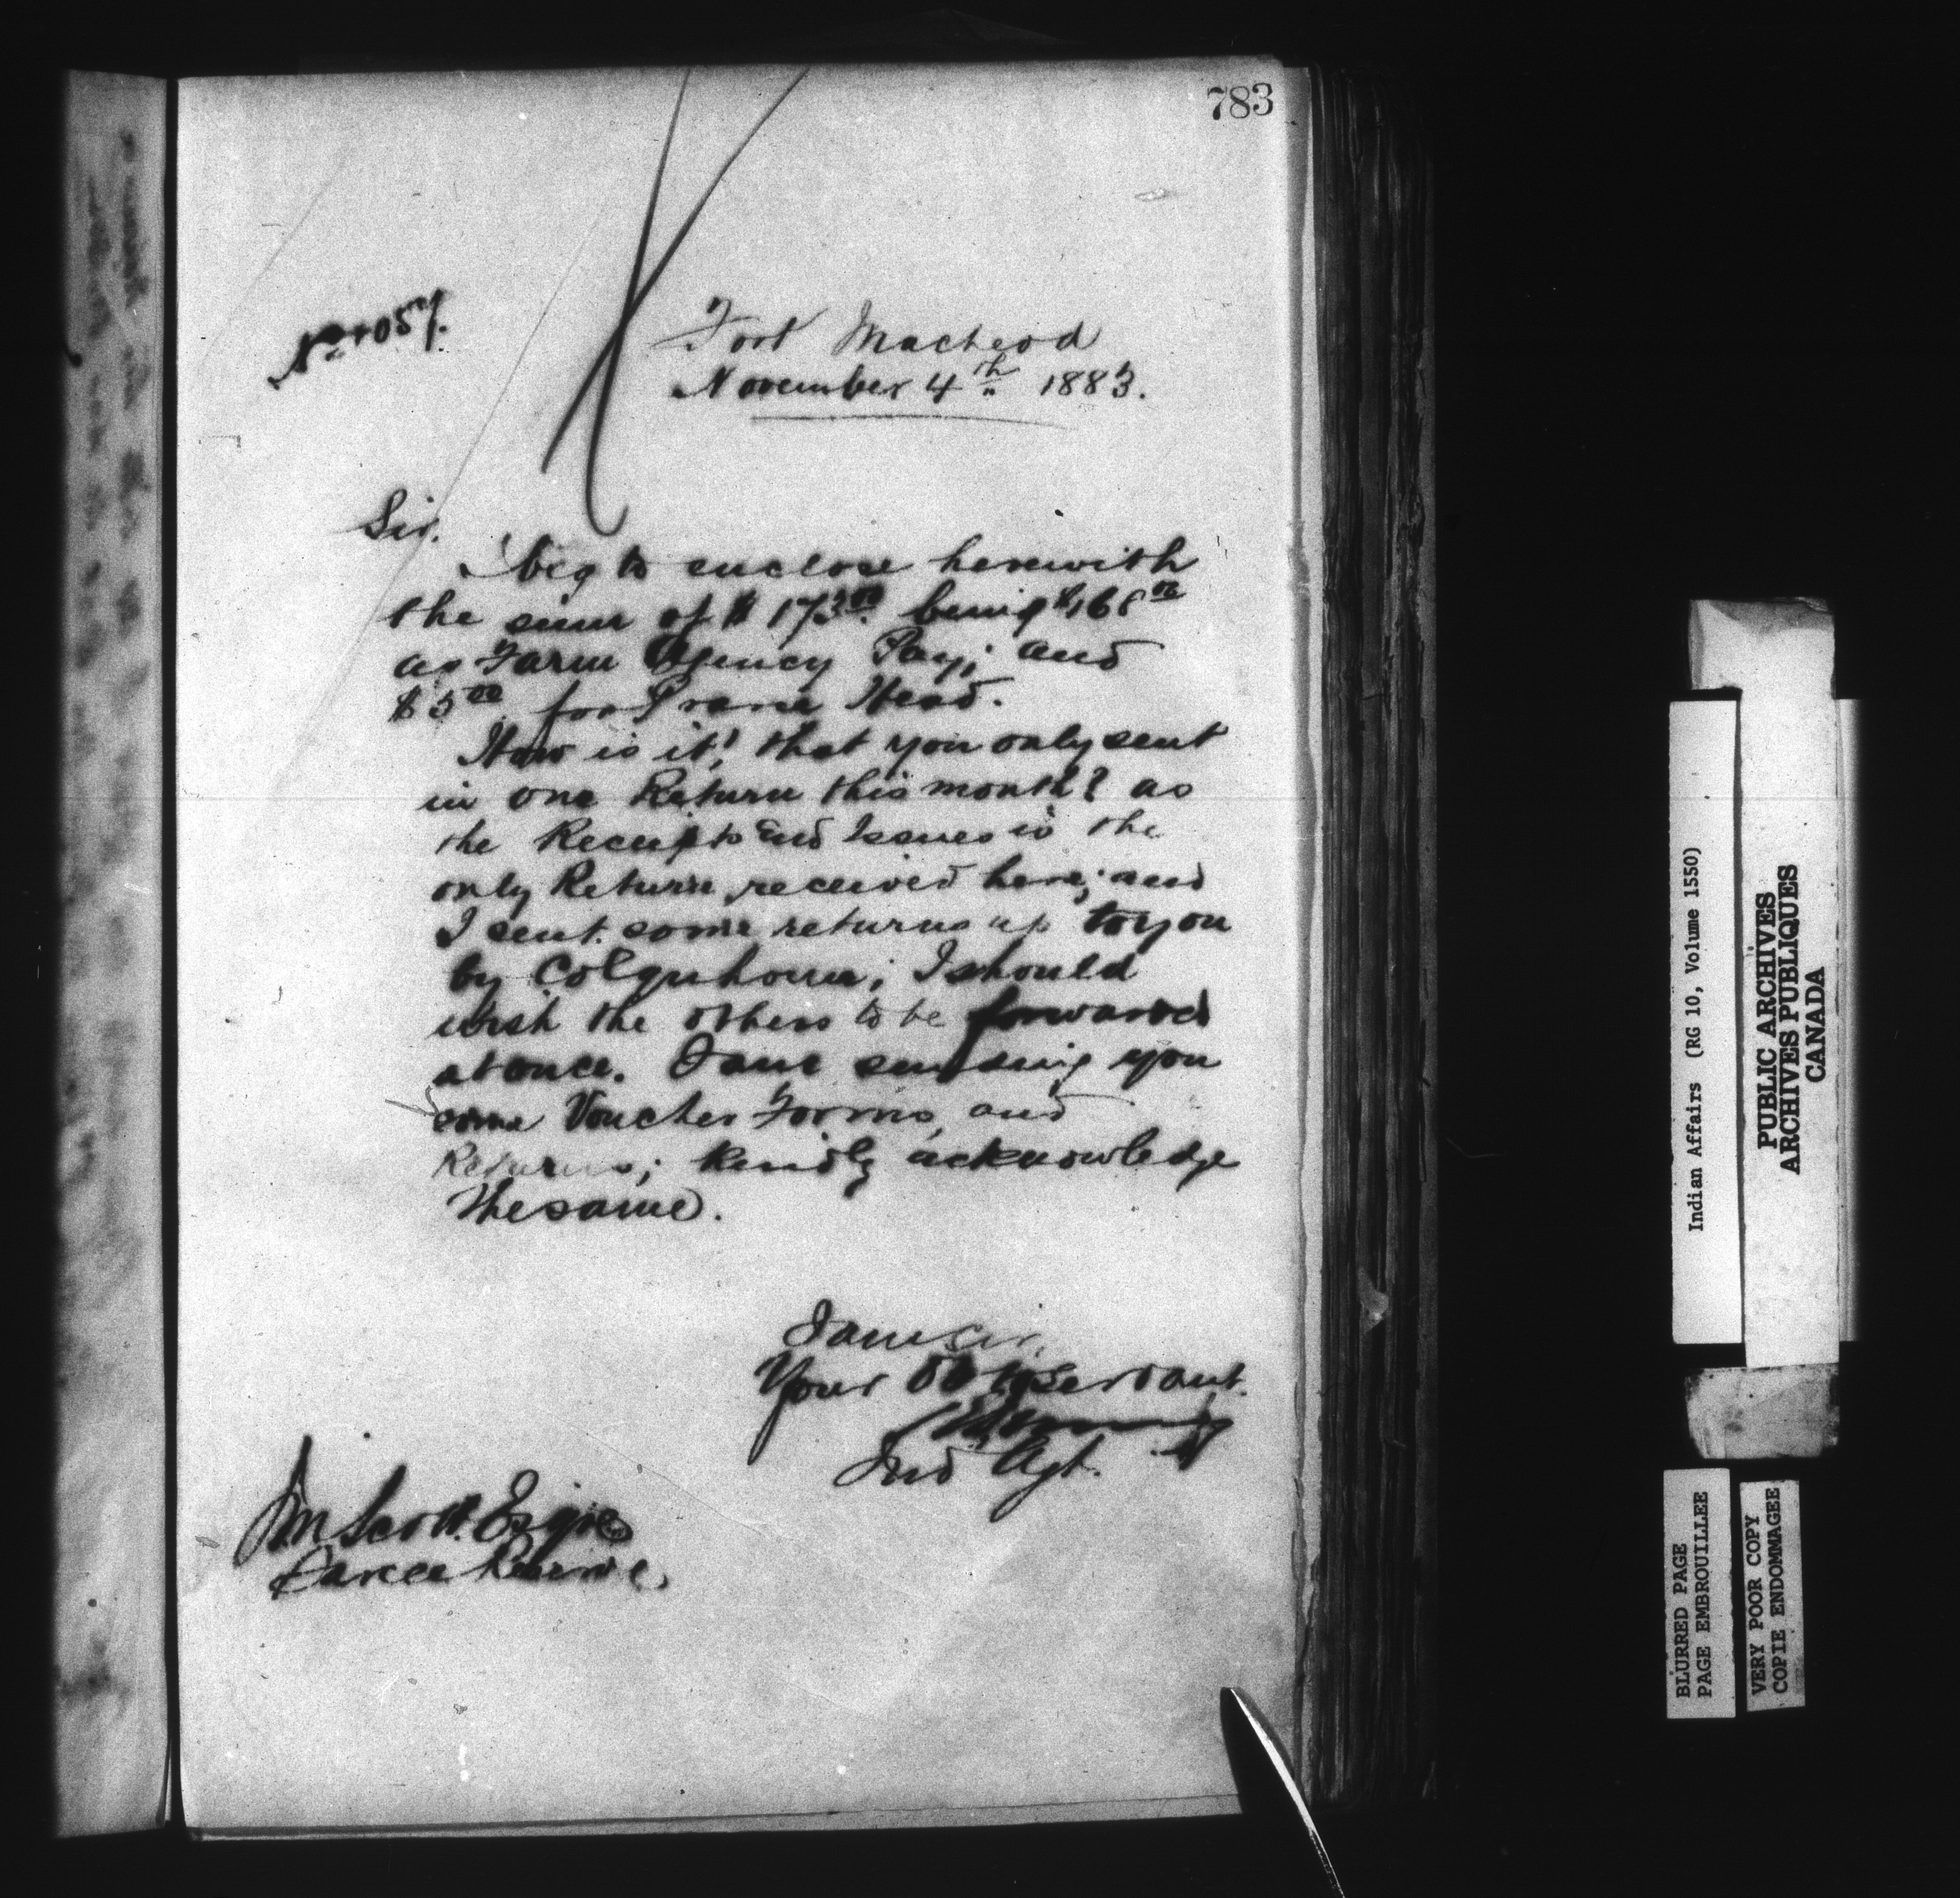 783
Fort Macleod
November 4th 1883.
Sir.
I beg to enclose herewith
the sum of $173.00 being $168.00
as Farm Agency Pay; and
$5.00 for Prarie Head.
How is it! that you only sent
in one Return this month? as
the Receipts and Issues is the
only Return received here; and
I sent some returns up to you
by Colquhoun; I should
wish the others to be forwarded
at once. I am sending you
some Voucher Forms, and
Returns; kindly acknowledge
the same.
I am Sir,
Your Obt Servant.
Ind Agt.
Scott Esqre
Sarcee Reserve,
Indian Affairs (RG 10, Volume 1550)
PUBLIC ARCHIVES
ARCHIVES PUBLIQUES
CANADA
BLURRED PAGE
PAGE EMBROUILLEE
VERY POOR COPY
COPIE ENDOMMAGEE